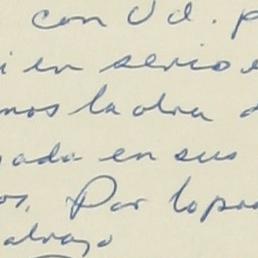 con Ud. p
i en serio e
mos la obra
gada en sus
os. Por lo pro
abrazo